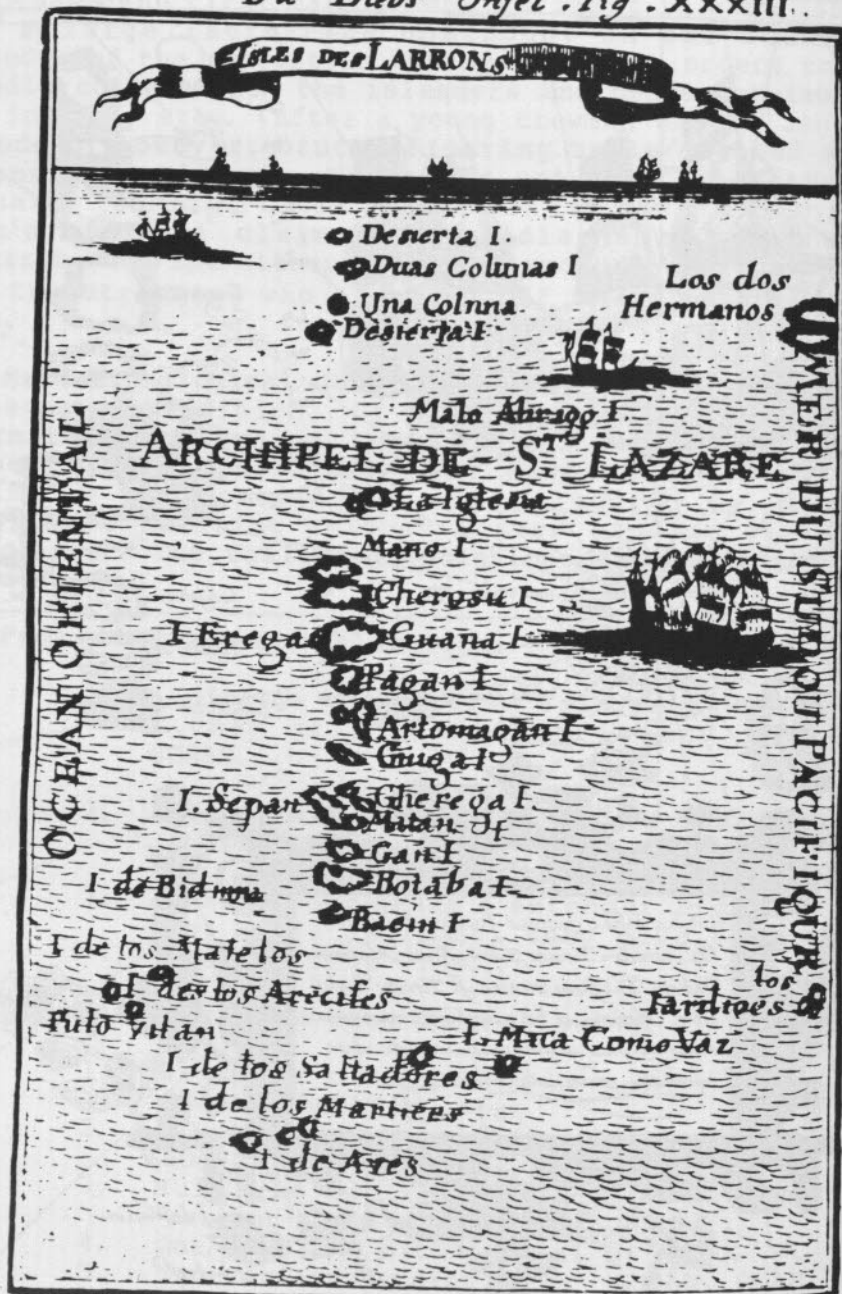 Die Diebs Insel. Fig. XXXIII.
ISLES DES LARRONS
Desierta I
Duas Colunas I
Una Colnna
Desierta I
Los dos
Hermanos
Malo Abrigo I.
ARCHIPEL DE ST LAZARE
La Iglesia
Mano I
Cheroſu I
I Erega
Guana I
Pagan I
Artomagan I
Guiga I
I. Sepan
Gherega I.
Mitan I
Gan I
Botaba I
Bacin I
I de Bidmou
I de los Matelos
I des los Areciſes
Pulo Vilan
los
Iardines
I. Mira Como Vaz
I de los Saltadores
I de los Martires
I de Ares
OCEAN ORIENTAL
MER DU SUD OU PACIFIQUE